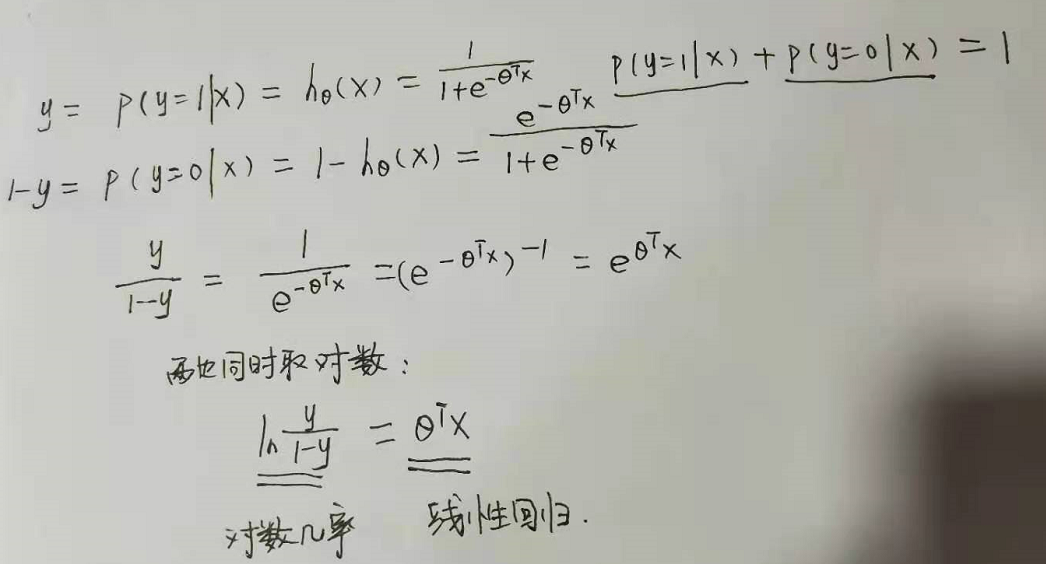 y = p(y=1|x) = hθ(x) = 1/(1+e^(-θ^T x)) p(y=1|x) + p(y=0|x) = 1
1-y = p(y=0|x) = 1-hθ(x) = e^(-θ^T x)/(1+e^(-θ^T x))
y/(1-y) = 1/e^(-θ^T x) = (e^(-θ^T x))^(-1) = e^(θ^T x)
两边同时取对数:
ln y/(1-y) = θ^T x
对数几率 线性回归.